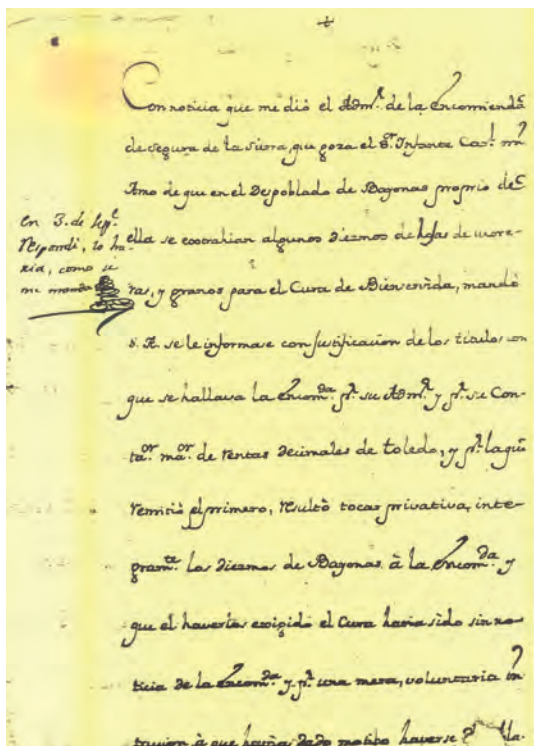 Con noticia que me dió el Adm.ʳ de la Encomienda
de Segura de la sierra, que goza el S.ʳ Infante Car.ˡ mi
Amo de que en el Despoblado de Bayonas proprio de
ella se extrahian algunos Diezmos de hojas de more-
ras, y granos para el Cura de Bienservida, mandò
S. A. se le informase con justificacion de los titulos con
que se hallava la Encom.ᵈᵃ p.ʳ su Adm.ʳ y p.ʳ su Con-
ta.ᵒʳ ma.ᵒʳ de rentas decimales de Toledo, y p.ʳ la que
remitió el primero, resultò tocar privativa, inte-
gram.ᵗᵉ los diezmos de Bayonas à la Encom.ᵈᵃ y
que el haverlos exigido el Cura havia sido sin no-
ticia de la Encom.ᵈᵃ y p.ʳ una mera, voluntaria in
trusion à que havia dado motibo haverse
En 3. de Sep.ᵉ
respondí, lo ha-
ria, como se
me manda